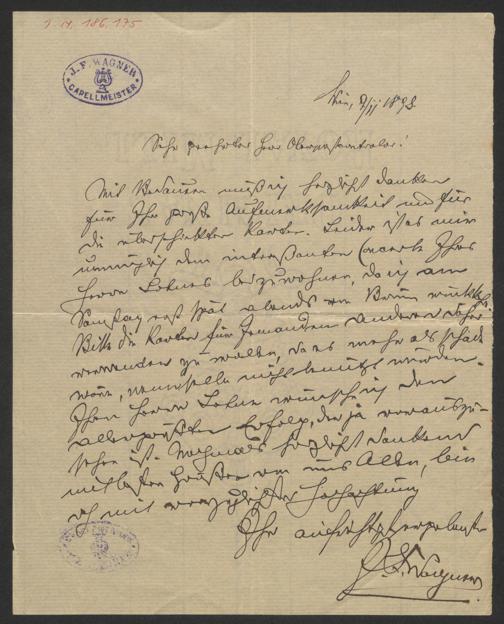 I. N. 186.175
J. F. WAGNER
CAPELLMEISTER
Wien, 1898.
Sehr geehrter Herr Oberpostcontrolor!
Mit Bedauern muß ich herzlichst danken
für Ihre große Aufmerksamkeit und für
die überschickten Karten. Leider ist es mir
unmöglich dem interessanten Concerte Ihres
Herrn Sohnes beizuwohnen, da ich am
Samstag erst spät abends von Brünn
Bitte die Karten für Jemanden anderen
verwenden zu wollen, da es mehr als schade
wäre, wenn selbe nicht benutzt würden.
Ihrem Herrn Sohne wünsche ich den
allergrößten Erfolg, der ja vorauszu-
sehen ist. Nochmals herzlichst dankend
mit besten Grüßen von uns Allen, bin
ich mit vorzüglichster Hochachtung
Ihr aufrichtigst ergebenster
J. F. Wagner